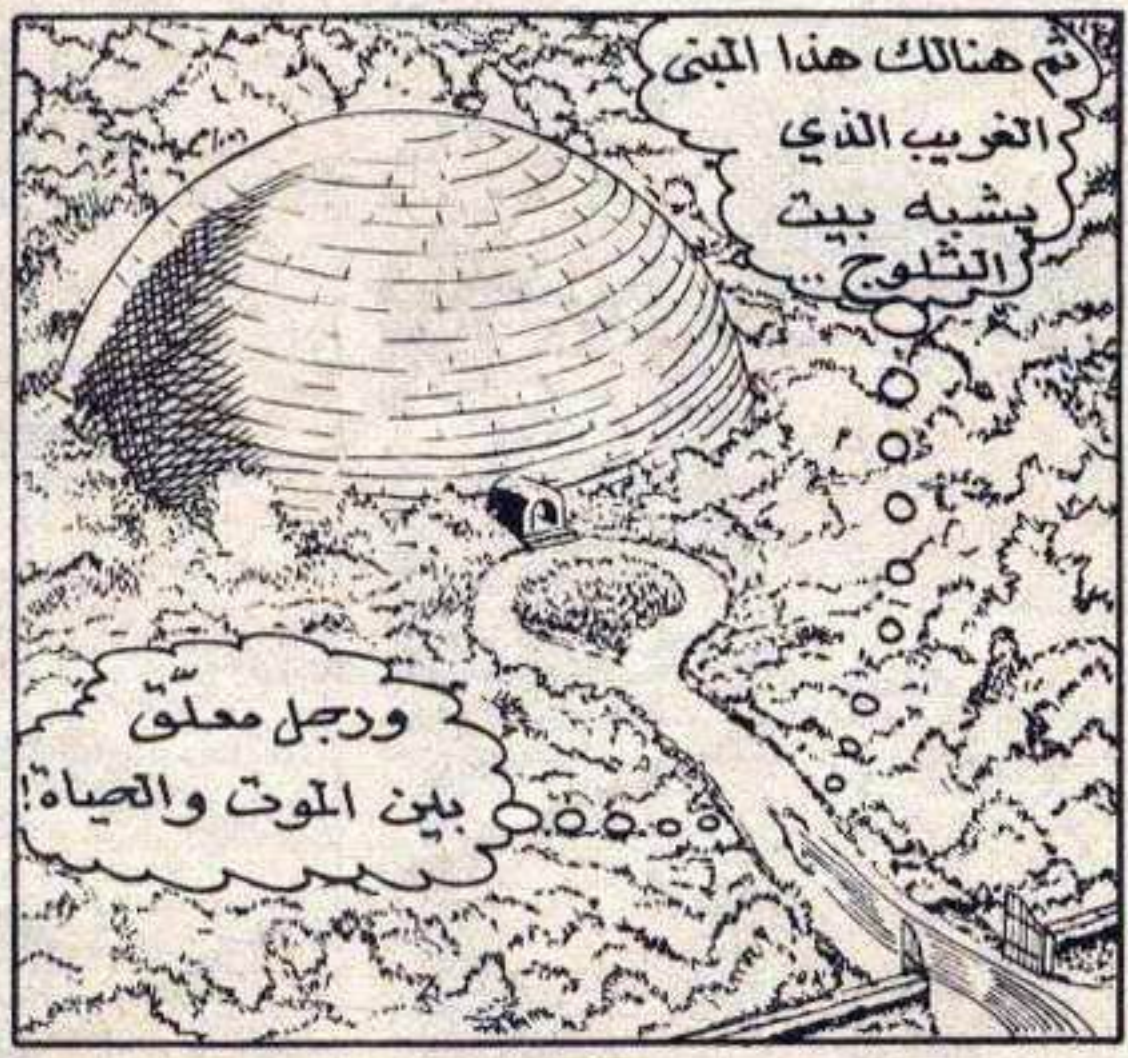 ثم هنالك هذا المبنى
الغريب الذي
يشبه بيت
الثلوج ..
ورجل معلّق
بين الموت والحياة!